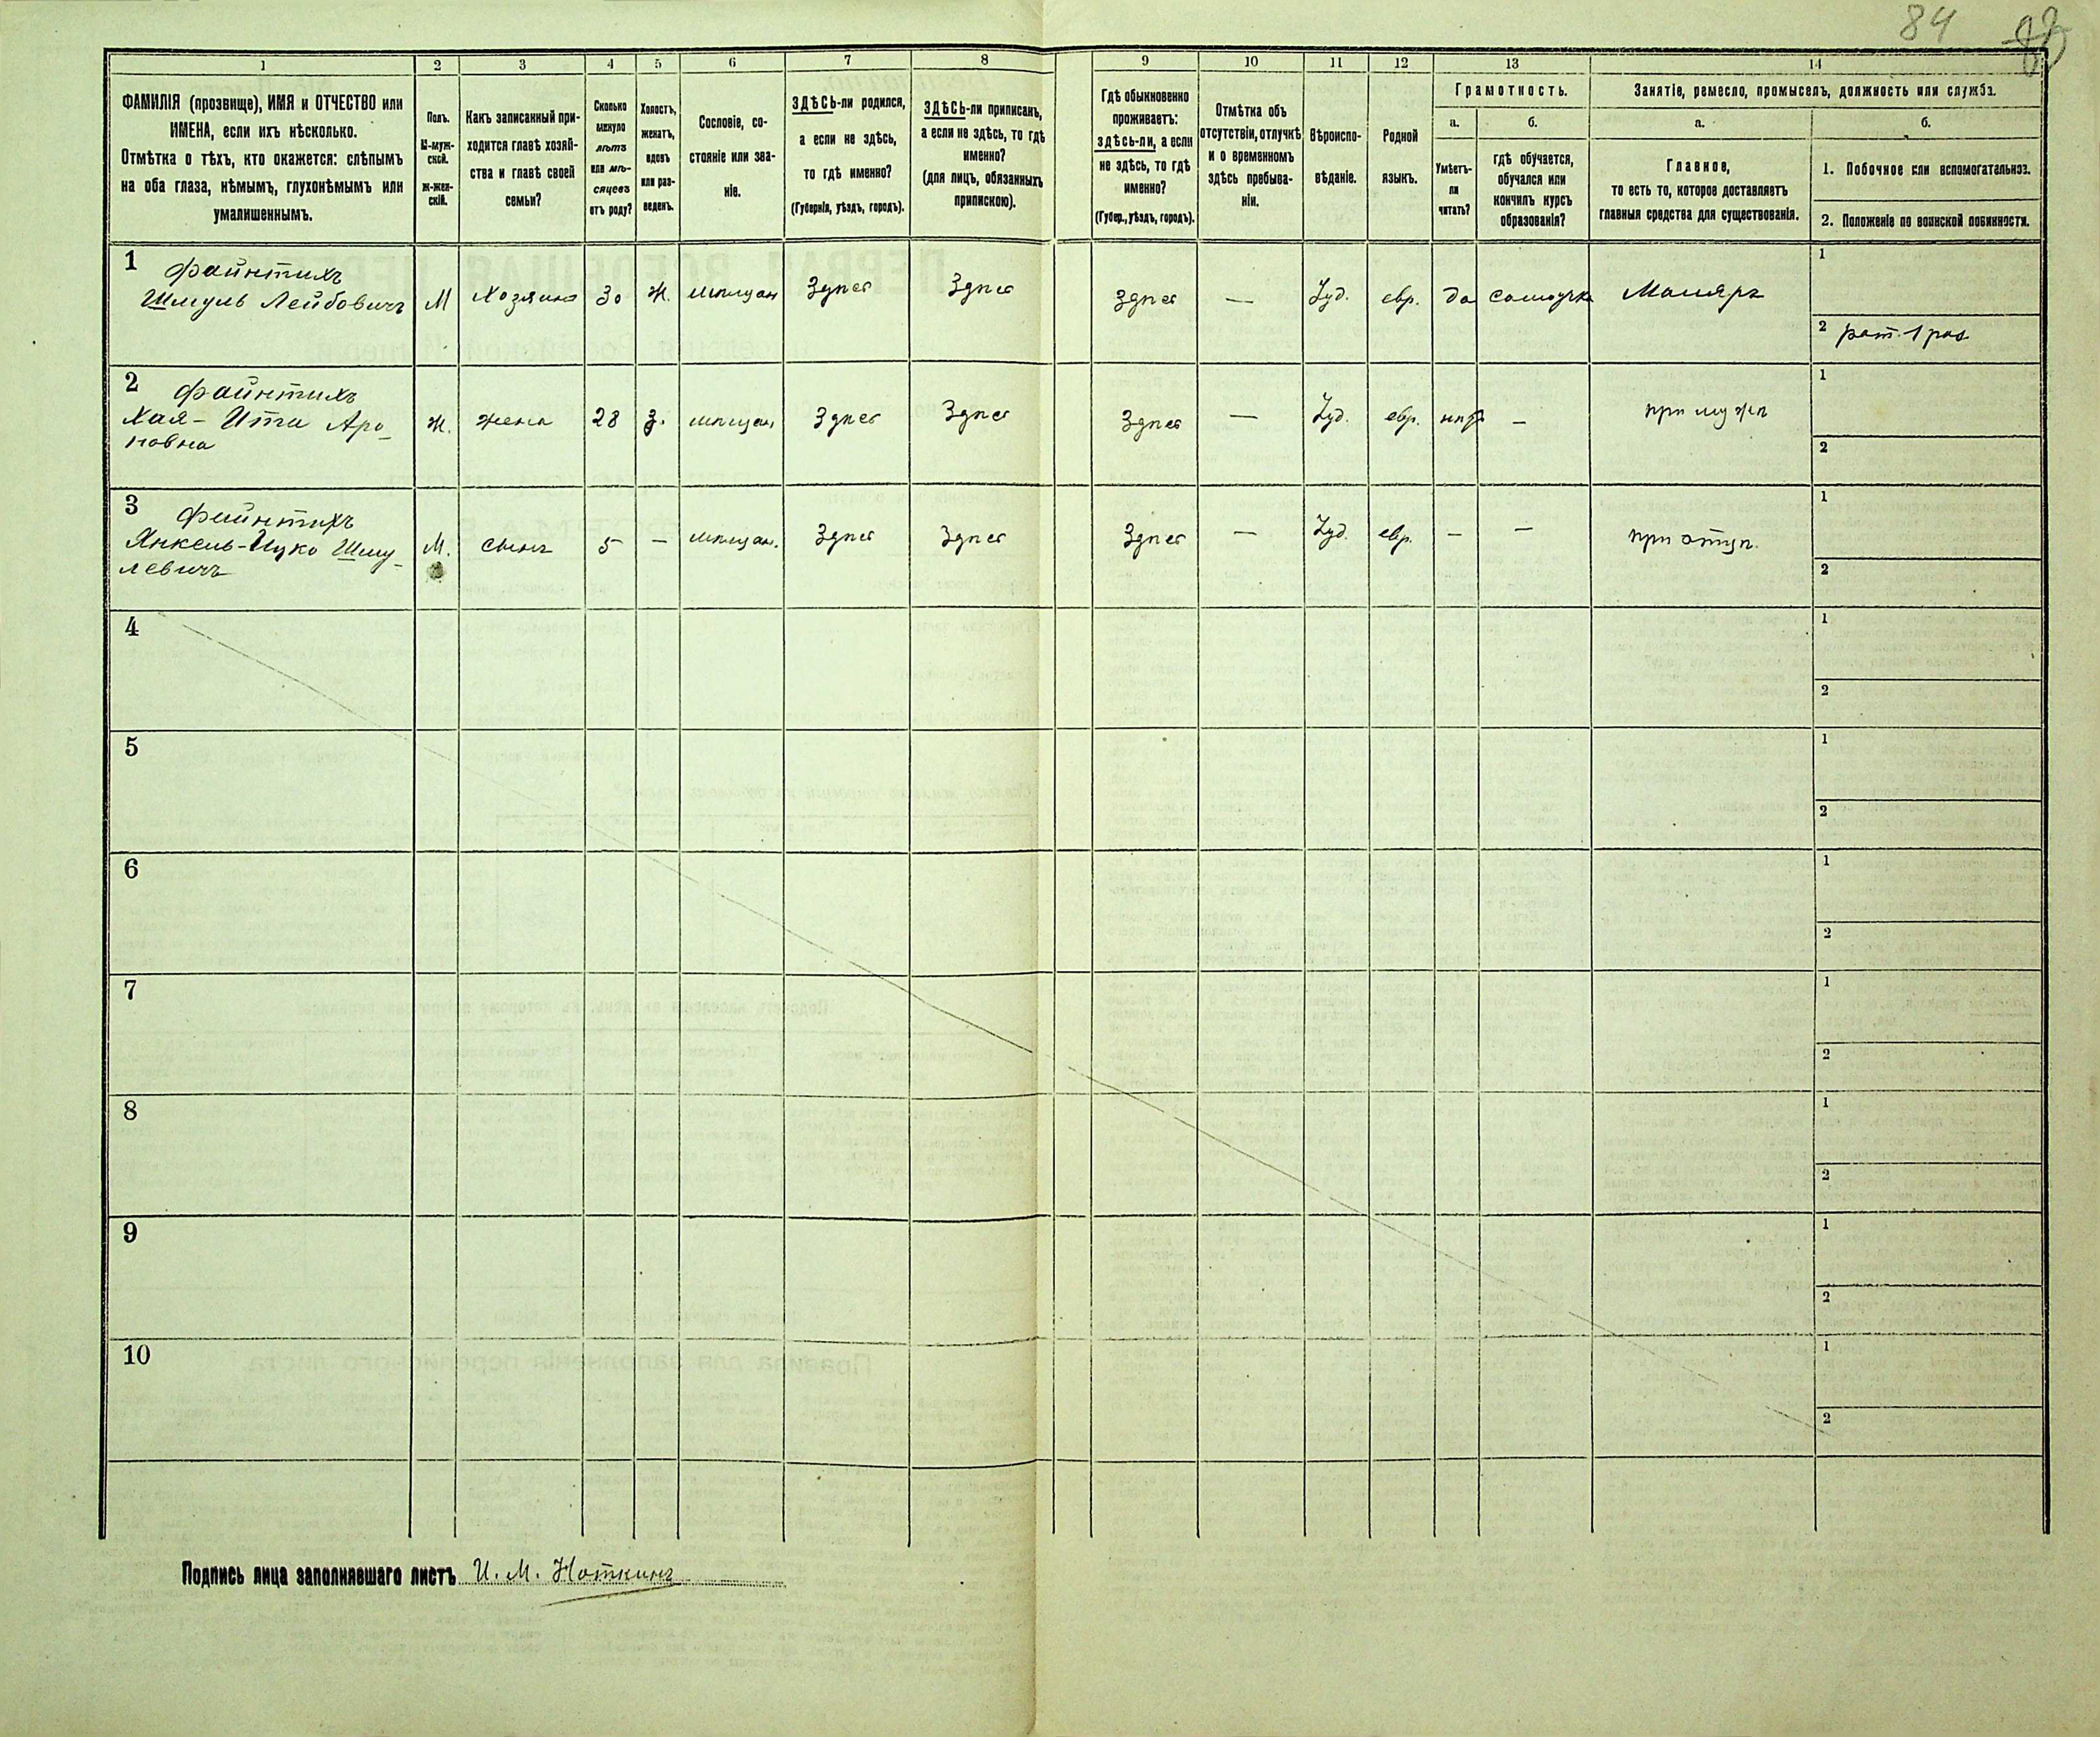 84
1 2 3 4 5 6 7 8 9 10 11 12 13 14
ФАМИЛІЯ (прозвище), ИМЯ и ОТЧЕСТВО или
ИМЕНА, если ихъ нѣсколько.
Отмѣтка о тѣхъ, кто окажется: слѣпымъ
на оба глаза, нѣмымъ, глухонѣмымъ или
умалишеннымъ.
Полъ.
М-муж-
ской.
ж-жен-
скій.
Какъ записанный при-
ходится главѣ хозяй-
ства и главѣ своей
семьи?
Сколько
минуло
лѣтъ
или мѣ-
сяцевъ
отъ роду?
Холостъ,
женатъ,
вдовъ
или раз-
веденъ.
Сословіе, со-
стояніе или зва-
ніе.
ЗДѢСЬ-ли родился,
а если не здѣсь,
то гдѣ именно?
(Губернія, уѣздъ, городъ).
ЗДѢСЬ-ли приписанъ,
а если не здѣсь, то гдѣ
именно?
(для лицъ, обязанныхъ
припискою).
Гдѣ обыкновенно
проживаетъ:
здѣсь-ли, а если
не здѣсь, то гдѣ
именно?
(Губер., уѣздъ, городъ).
Отмѣтка объ
отсутствіи, отлучкѣ
и о временномъ
здѣсь пребыва-
ніи.
Вѣроиспо-
вѣданіе.
Родной
языкъ.
Грамотность.
а. б.
Умѣетъ-
ли
читать?
гдѣ обучается,
обучался или
кончилъ курсъ
образованія?
Занятіе, ремесло, промыселъ, должность или служба.
а. б.
Главное,
то есть то, которое доставляетъ
главныя средства для существованія.
1. Побочное или вспомогательное.
2. Положеніе по воинской повинности.
1 Файнтихъ
Шмуль Лейбовичъ М Хозяинъ 30 Ж. мѣщан Здѣсь Здѣсь Здѣсь — Іуд. евр. да самоучка Маляръ
1
2 рат. 1 раз
2 Файнтихъ
Хая-Ита Аро-
новна Ж. жена 28 З. мѣщан Здѣсь Здѣсь Здѣсь — Іуд. евр. нѣтъ — при мужѣ
1
2
3 Файнтихъ
Янкель-Ицко Шму-
левичъ М. сынъ 5 — мѣщан. Здѣсь Здѣсь Здѣсь — Іуд. евр. — — при отцѣ.
1
2
4
1
2
5
1
2
6
1
2
7
1
2
8
1
2
9
1
2
10
1
2
Подпись лица заполнявшаго листъ И. М. Ноткинъ